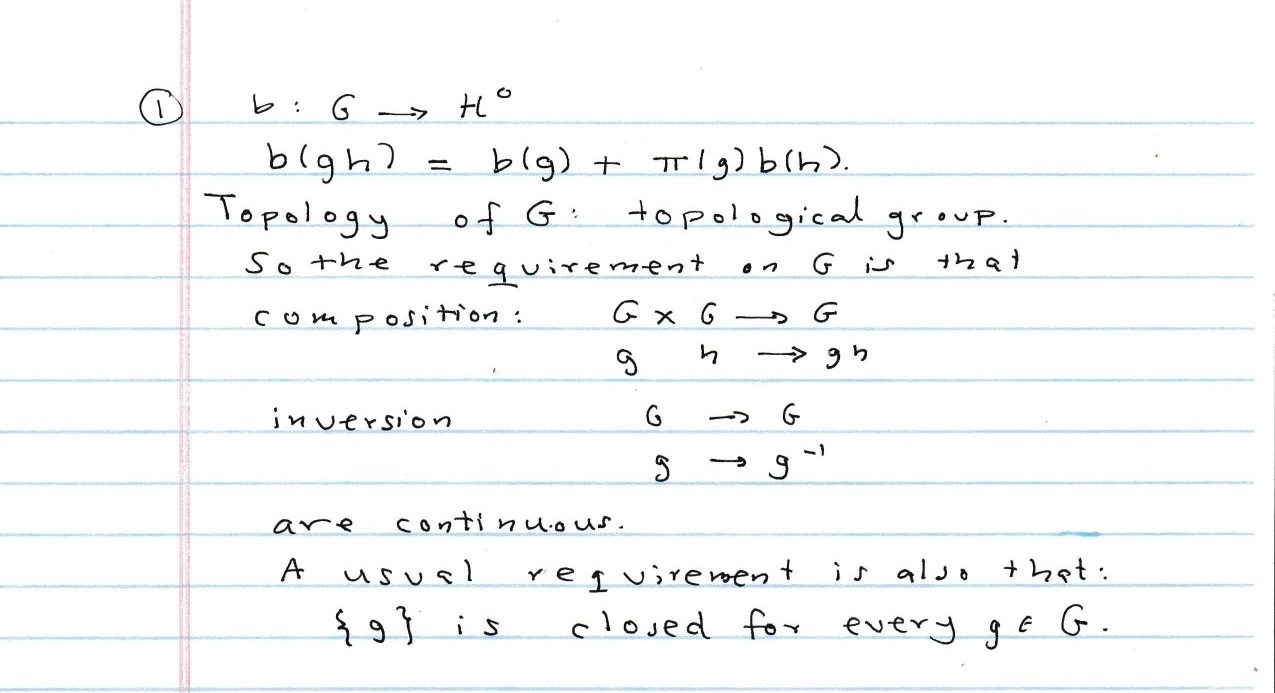 ① b : G → H°
b(gh) = b(g) + π(g) b(h).
Topology of G : topological group.
So the requirement on G is that
composition : G × G → G
g h → gh
inversion G → G
g → g⁻¹
are continuous.
A usual requirement is also that :
{g} is closed for every g ∈ G.